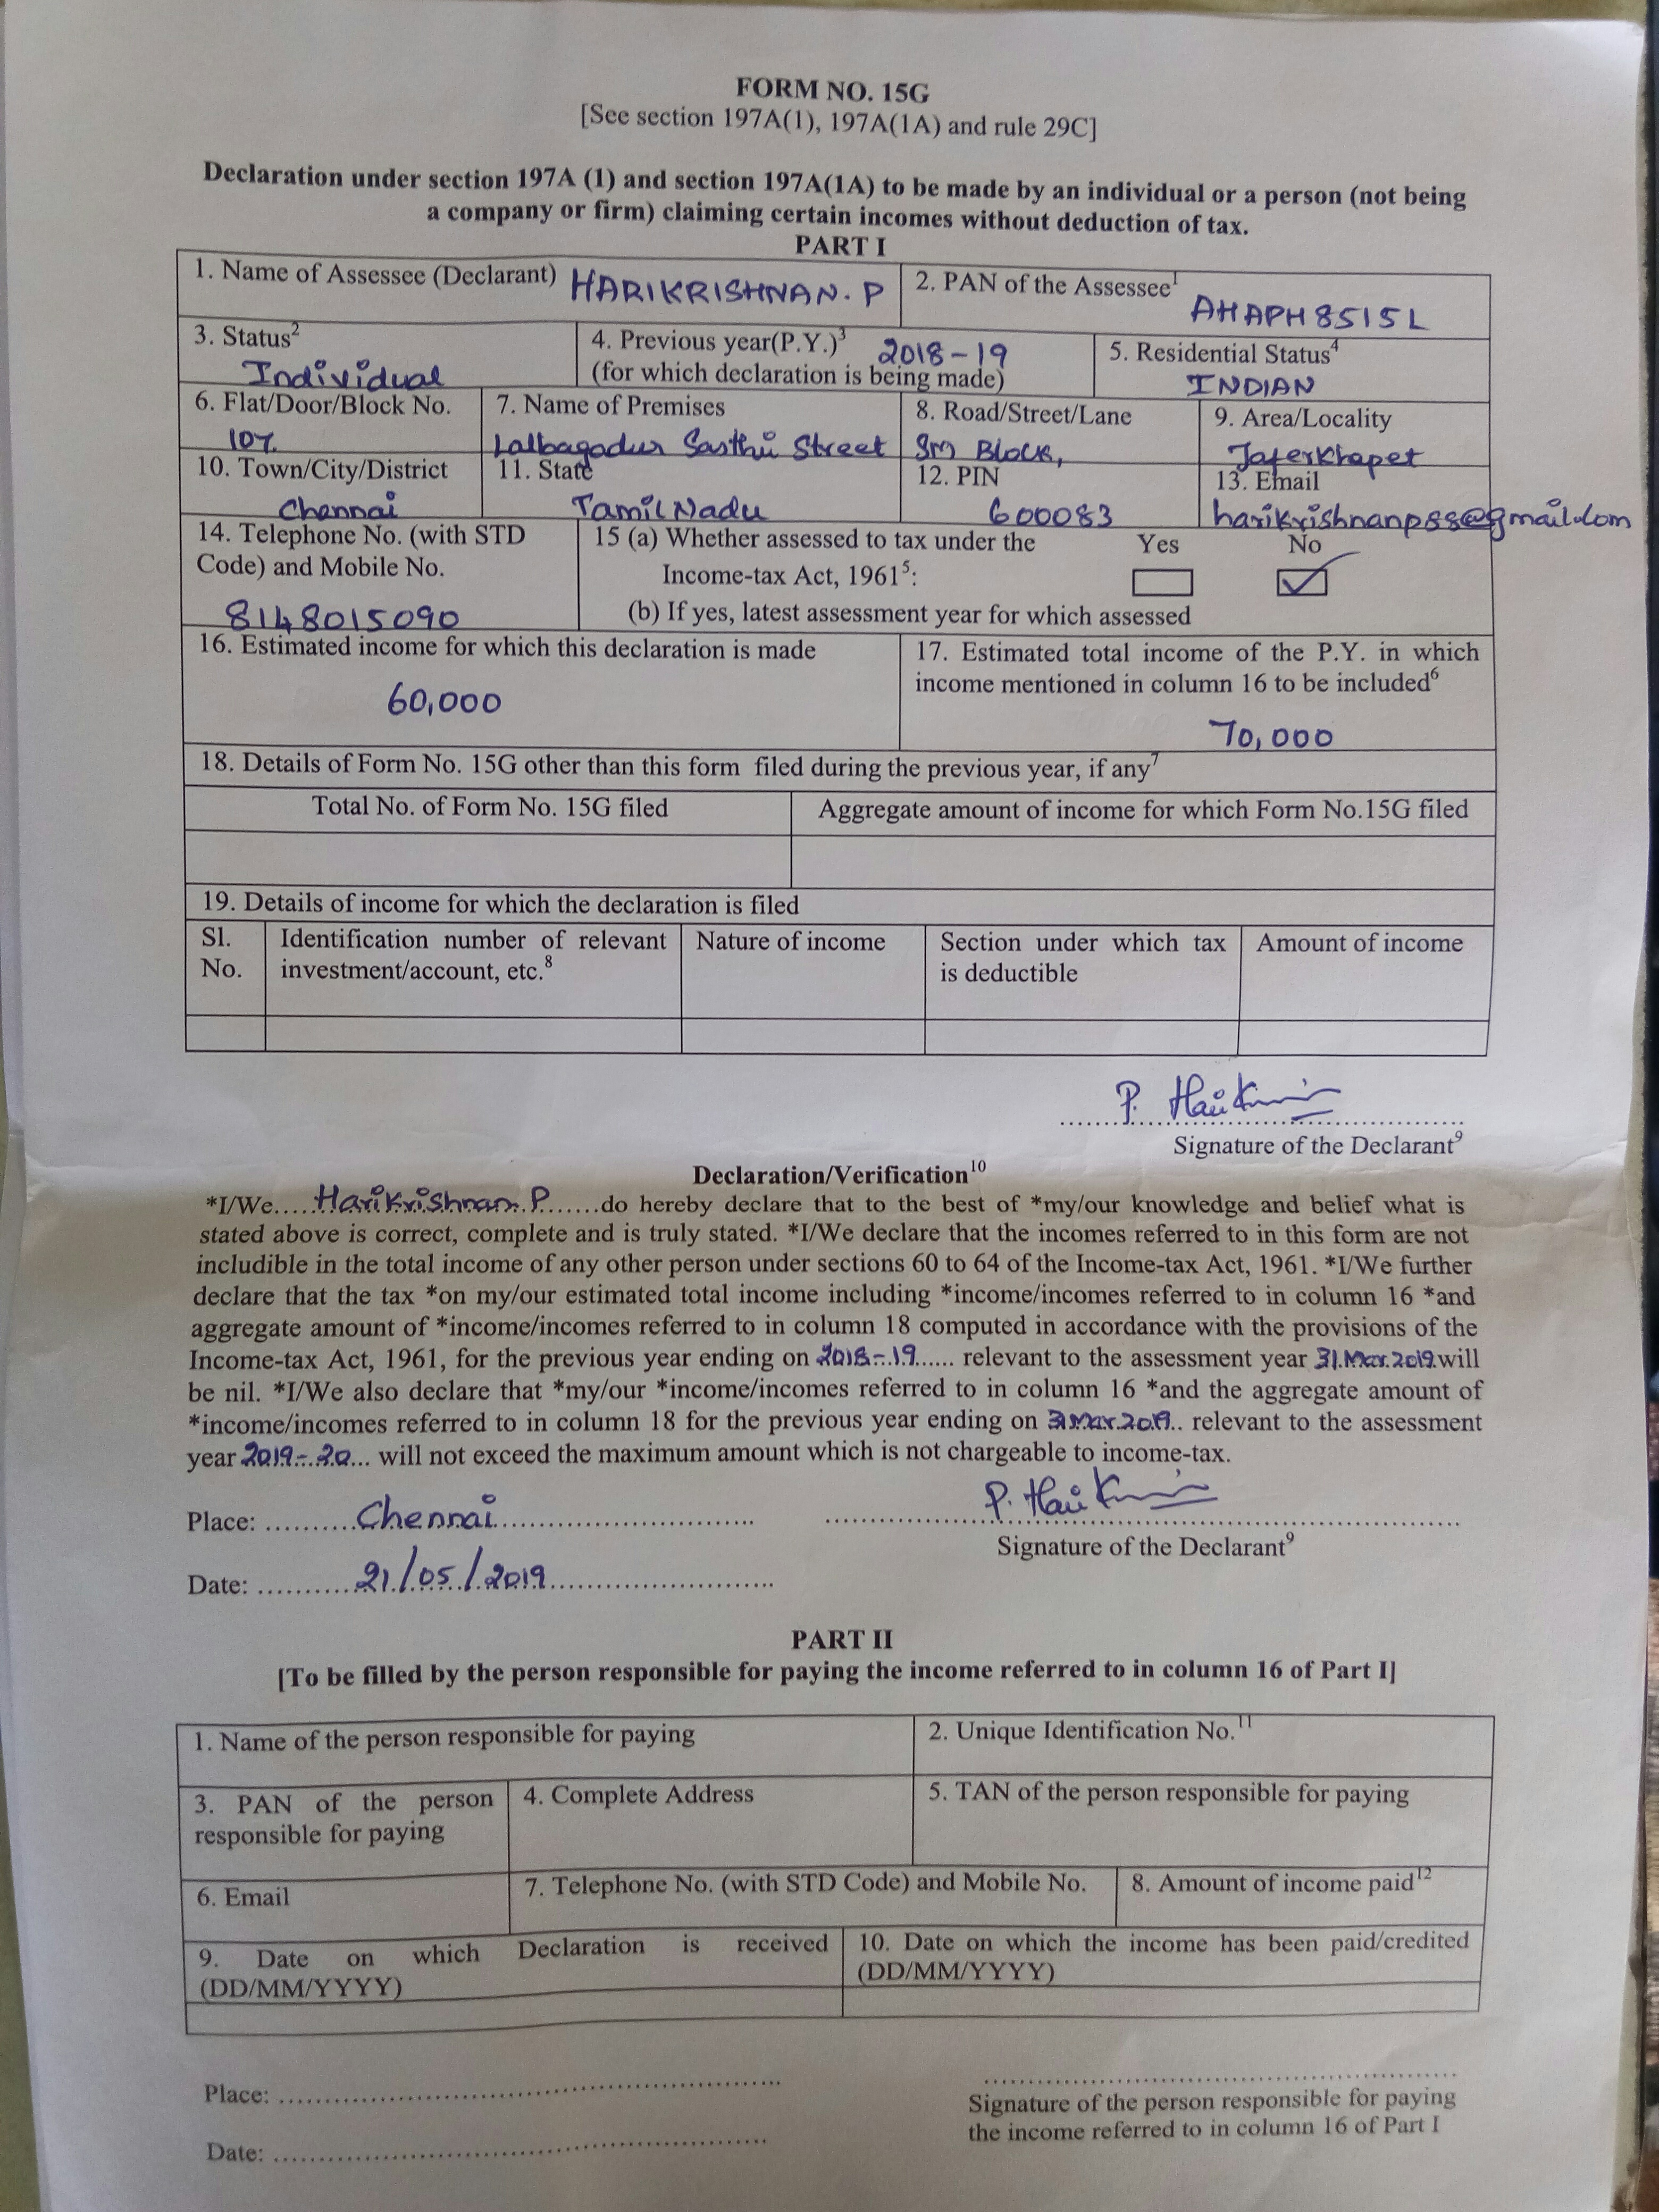 FORM NO. 15G
[See section 197A(1), 197A(1A) and rule 29C]
Declaration under section 197A (1) and section 197A(1A) to be made by an individual or a person (not being
a company or firm) claiming certain incomes without deduction of tax.
PART I
1. Name of Assessee (Declarant) HARIKRISHNAN. P
2. PAN of the Assessee1
AHAPH8515L
3. Status2
Individual
4. Previous year(P.Y.)3 2018-19
(for which declaration is being made)
5. Residential Status4
INDIAN
6. Flat/Door/Block No.
7. Name of Premises
Lalbagadur Sasthri Street
8. Road/Street/Lane
Block,
9. Area/Locality
Jaferkhapet
10. Town/City/District
Chennai
11. State
TamilNadu
12. PIN
600083
13. Email
harikrishnanp88@gmail.com
14. Telephone No. (with STD
Code) and Mobile No.
8148015090
15 (a) Whether assessed to tax under the Yes No
Income-tax Act, 19615:
(b) If yes, latest assessment year for which assessed
16. Estimated income for which this declaration is made
60,000
17. Estimated total income of the P.Y. in which
income mentioned in column 16 to be included6
70,000
18. Details of Form No. 15G other than this form filed during the previous year, if any7
Total No. of Form No. 15G filed
Aggregate amount of income for which Form No.15G filed
19. Details of income for which the declaration is filed
Sl.
No.
Identification number of relevant
investment/account, etc.8
Nature of income
Section under which tax
is deductible
Amount of income
Signature of the Declarant9
Declaration/Verification10
*I/We.....Harikrishnan. P.......do hereby declare that to the best of *my/our knowledge and belief what is
stated above is correct, complete and is truly stated. *I/We declare that the incomes referred to in this form are not
includible in the total income of any other person under sections 60 to 64 of the Income-tax Act, 1961. *I/We further
declare that the tax *on my/our estimated total income including *income/incomes referred to in column 16 *and
aggregate amount of *income/incomes referred to in column 18 computed in accordance with the provisions of the
Income-tax Act, 1961, for the previous year ending on 2018-19...... relevant to the assessment year 31.Mar.2019.will
be nil. *I/We also declare that *my/our *income/incomes referred to in column 16 *and the aggregate amount of
*income/incomes referred to in column 18 for the previous year ending on 31.Mar.2019.. relevant to the assessment
year 2019-20... will not exceed the maximum amount which is not chargeable to income-tax.
Place: ..........Chennai..................................
Signature of the Declarant9
Date: ..........21/05/2019..............................
PART II
[To be filled by the person responsible for paying the income referred to in column 16 of Part I]
1. Name of the person responsible for paying
2. Unique Identification No.11
3. PAN of the person
responsible for paying
4. Complete Address
5. TAN of the person responsible for paying
6. Email
7. Telephone No. (with STD Code) and Mobile No.
8. Amount of income paid12
9. Date on which Declaration is received
(DD/MM/YYYY)
10. Date on which the income has been paid/credited
(DD/MM/YYYY)
Place: ............................................................
Date: ............................................................
Signature of the person responsible for paying
the income referred to in column 16 of Part I